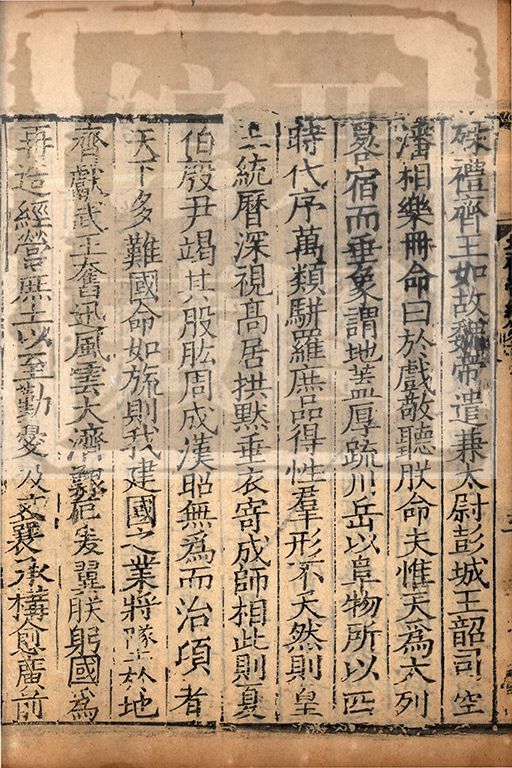 殊禮齊王如故魏帝遣兼太尉彭城王韶司空
潘相樂冊命曰於戲敬聽朕命夫惟天為大列
晷宿而垂象謂地蓋厚疏川岳以阜物所以四
時代序萬類駢羅庶品得性羣形不夭然則皇
王統曆深視高居拱默垂衣寄成師相此則夏
伯殷尹竭其股肱周成漢昭無為而治項者
天下多難國命如旒則我建國之業將墜於地
齊獻武王奮迅風雲大濟艱危爰翼朕躬國為
再造經營庶土以至勤憂及文襄承構愈廣前